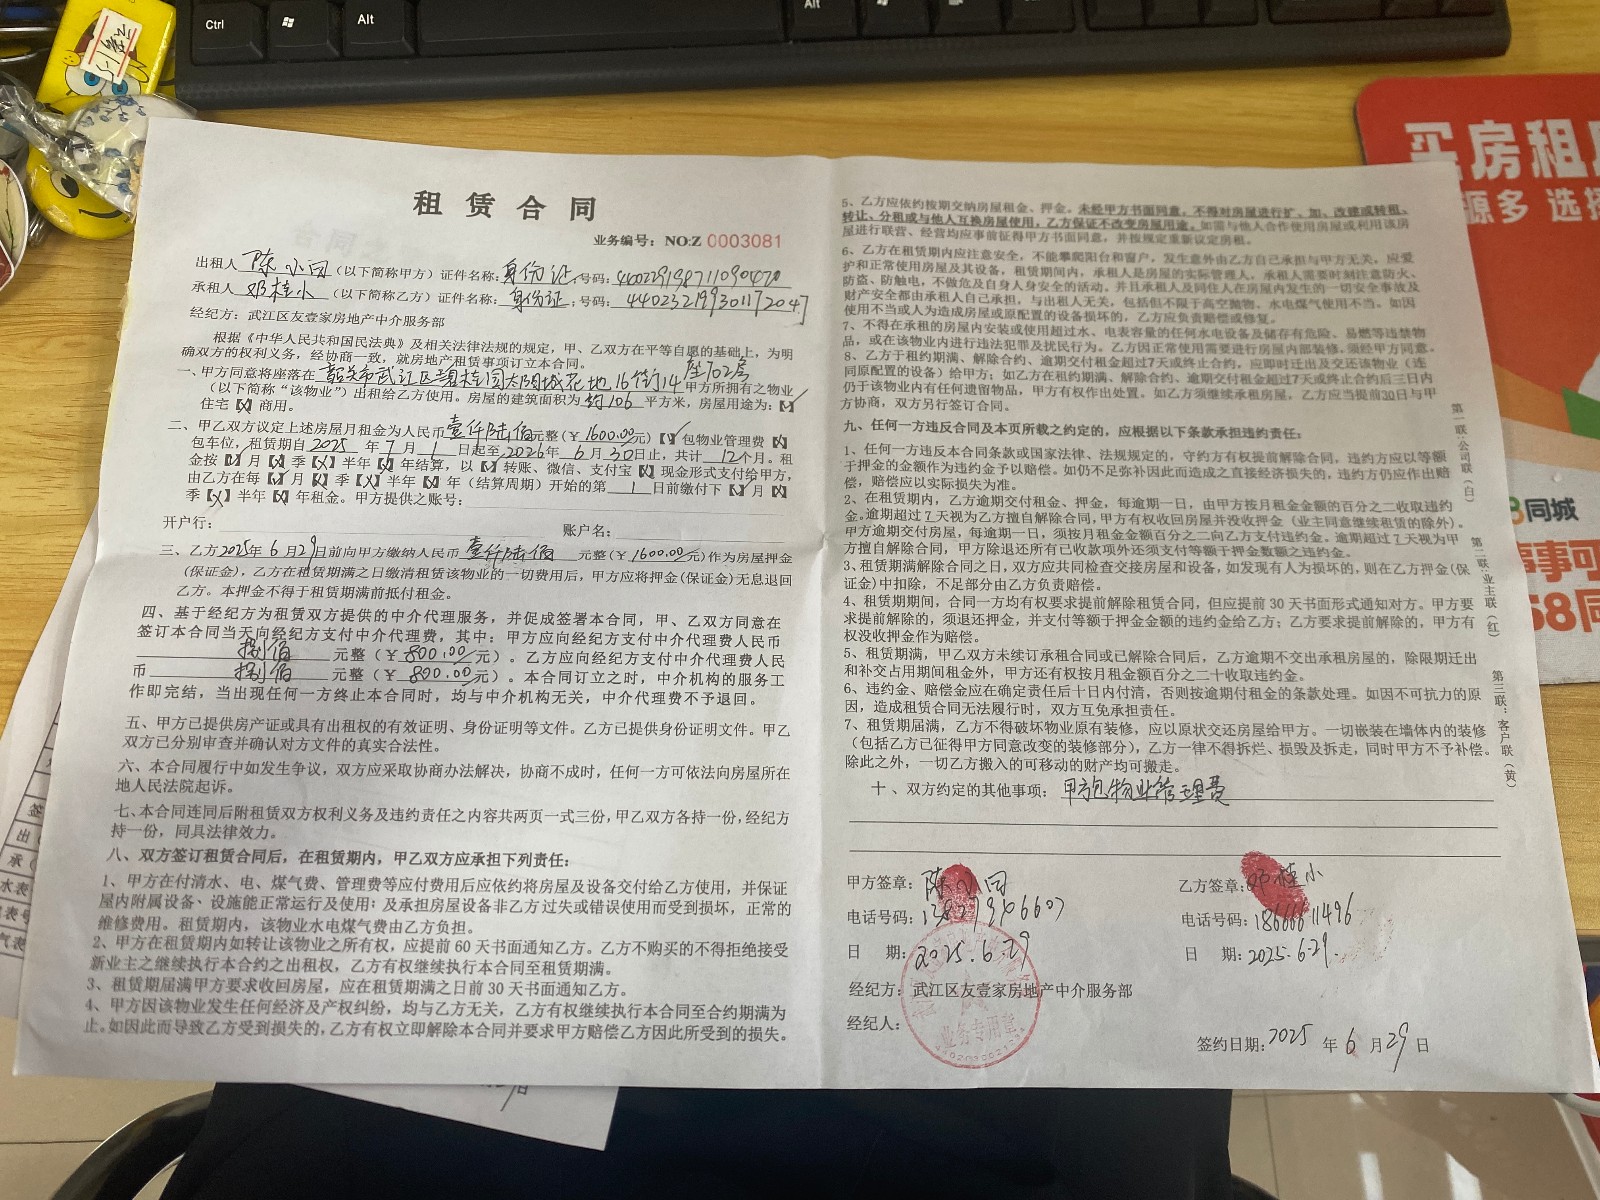 Ctrl
Alt
Alt
买房租房
源多 选择
同城
58同
租赁合同
业务编号：NO:Z 0003081
出租人 陈小团（以下简称甲方）证件名称：身份证，号码：440229198711090470
承租人 邓桂小（以下简称乙方）证件名称：身份证，号码：440232199301172047
经纪方：武江区友壹家房地产中介服务部
根据《中华人民共和国民法典》及相关法律法规的规定，甲、乙双方在平等自愿的基础上，为明
确双方的权利义务，经协商一致，就房地产租赁事项订立本合同。
一、甲方同意将座落在 韶关市武江区碧桂园太阳城花地16街14座702房 甲方所拥有之物业
（以下简称“该物业”）出租给乙方使用。房屋的建筑面积为 约106 平方米，房屋用途为：【✓】
住宅【×】商用。
二、甲乙双方议定上述房屋月租金为人民币 壹仟陆佰 元整（¥ 1600.00元）【✓】包物业管理费【×】
包车位，租赁期自 2025 年 7 月 1 日起至 2026 年 6 月 30 日止，共计 12 个月。租
金按【✓】月【×】季【×】半年【×】年结算，以【✓】转账、微信、支付宝【×】现金形式支付给甲方，
由乙方在每【✓】月【×】季【×】半年【×】年（结算周期）开始的第 1 日前缴付下【✓】月【×】
季【×】半年【×】年租金。甲方提供之账号：
开户行： 账户名：
三、乙方2025年6月29日前向甲方缴纳人民币 壹仟陆佰 元整（¥ 1600.00元）作为房屋押金
(保证金)，乙方在租赁期满之日缴清租赁该物业的一切费用后，甲方应将押金(保证金)无息退回
乙方。本押金不得于租赁期满前抵付租金。
四、基于经纪方为租赁双方提供的中介代理服务，并促成签署本合同，甲、乙双方同意在
签订本合同当天向经纪方支付中介代理费，其中：甲方应向经纪方支付中介代理费人民币
捌佰 元整（¥ 800.00/元）。乙方应向经纪方支付中介代理费人民
币 捌佰 元整（¥ 800.00/元）。本合同订立之时，中介机构的服务工
作即完结，当出现任何一方终止本合同时，均与中介机构无关，中介代理费不予退回。
五、甲方已提供房产证或具有出租权的有效证明、身份证明等文件。乙方已提供身份证明文件。甲乙
双方已分别审查并确认对方文件的真实合法性。
六、本合同履行中如发生争议，双方应采取协商办法解决，协商不成时，任何一方可依法向房屋所在
地人民法院起诉。
七、本合同连同后附租赁双方权利义务及违约责任之内容共两页一式三份，甲乙双方各持一份，经纪方
持一份，同具法律效力。
八、双方签订租赁合同后，在租赁期内，甲乙双方应承担下列责任：
1、甲方在付清水、电、煤气费、管理费等应付费用后应依约将房屋及设备交付给乙方使用，并保证
屋内附属设备、设施能正常运行及使用；及承担房屋设备非乙方过失或错误使用而受到损坏，正常的
维修费用。租赁期内，该物业水电煤气费由乙方负担。
2、甲方在租赁期内如转让该物业之所有权，应提前60天书面通知乙方。乙方不购买的不得拒绝接受
新业主之继续执行本合约之出租权，乙方有权继续执行本合同至租赁期满。
3、租赁期届满甲方要求收回房屋，应在租赁期满之日前30天书面通知乙方。
4、甲方因该物业发生任何经济及产权纠纷，均与乙方无关，乙方有权继续执行本合同至合约期满为
止。如因此而导致乙方受到损失的，乙方有权立即解除本合同并要求甲方赔偿乙方因此所受到的损失。
5、乙方应依约按期交纳房屋租金、押金。未经甲方书面同意，不得对房屋进行扩、加、改建或转租、
转让、分租或与他人互换房屋使用，乙方保证不改变房屋用途。如需与他人合作使用房屋或利用该房
屋进行联营、经营均应事前征得甲方书面同意，并按规定重新议定房租。
6、乙方在租赁期内应注意安全，不能攀爬阳台和窗户，发生意外由乙方自己承担与甲方无关，应爱
护和正常使用房屋及其设备，租赁期间内，承租人是房屋的实际管理人，承租人需要时刻注意防火、
防盗、防触电，不做危及自身人身安全的活动，并且承租人及同住人在房屋内发生的一切安全事故及
财产安全都由承租人自己承担，与出租人无关，包括但不限于高空抛物、水电煤气使用不当。如因
使用不当或人为造成房屋或原配置的设备损坏的，乙方应负责赔偿或修复。
7、不得在承租的房屋内安装或使用超过水、电表容量的任何水电设备及储存有危险、易燃等违禁物
品，或在该物业内进行违法犯罪及扰民行为。乙方因正常使用需要进行房屋内部装修，须经甲方同意。
8、乙方于租赁期满、解除合约、逾期交付租金超过7天或终止合约，应即时迁出及交还该物业（连
同原配置的设备）给甲方；如乙方在租赁期满、解除合约、逾期交付租金超过7天或终止合约后三日内
仍于该物业内有任何遗留物品，甲方有权作出处置。如乙方须继续承租房屋，乙方应当提前30日与甲
方协商，双方另行签订合同。
九、任何一方违反合同及本页所载之约定的，应根据以下条款承担违约责任：
1、任何一方违反本合同条款或国家法律、法规规定的，守约方有权提前解除合同，违约方应以等额
于押金的金额作为违约金予以赔偿。如仍不足弥补因此而造成之直接经济损失的，违约方仍应作出赔
偿，赔偿应以实际损失为准。
2、在租赁期内，乙方逾期交付租金、押金，每逾期一日，由甲方按月租金金额的百分之二收取违约
金。逾期超过7天视为乙方擅自解除合同，甲方有权收回房屋并没收押金（业主同意继续租赁的除外）。
甲方逾期交付房屋，每逾期一日，须按月租金金额百分之二向乙方支付违约金。逾期超过7天视为甲
方擅自解除合同，甲方除退还所有已收款项外还须支付等额于押金数额之违约金。
3、租赁期满解除合同之日，双方应共同检查交接房屋和设备，如发现有人为损坏的，则在乙方押金(保
证金)中扣除，不足部分由乙方负责赔偿。
4、租赁期期间，合同一方均有权要求提前解除租赁合同，但应提前30天书面形式通知对方。甲方要
求提前解除的，须退还押金，并支付等额于押金金额的违约金给乙方；乙方要求提前解除的，甲方有
权没收押金作为赔偿。
5、租赁期满，甲乙双方未续订承租合同或已解除合同后，乙方逾期不交出承租房屋的，除限期迁出
和补交占用期间租金外，甲方还有权按月租金额百分之二十收取违约金。
6、违约金、赔偿金应在确定责任后十日内付清，否则按逾期付租金的条款处理。如因不可抗力的原
因，造成租赁合同无法履行时，双方互免承担责任。
7、租赁期届满，乙方不得破坏物业原有装修，应以原状交还房屋给甲方。一切嵌装在墙体内的装修
（包括乙方已征得甲方同意改变的装修部分），乙方一律不得拆烂、损毁及拆走，同时甲方不予补偿。
除此之外，一切乙方搬入的可移动的财产均可搬走。
十、双方约定的其他事项：甲方包物业管理费
第一联：公司联（白）
第二联：业主联（红）
第三联：客户联（黄）
甲方签章：陈小团
乙方签章：邓桂小
电话号码：
电话号码：18666611496
日 期：2025.6.29
日 期：2025.6.29.
经纪方：武江区友壹家房地产中介服务部
经纪人：
业务专用章
签约日期：2025 年 6 月 29 日